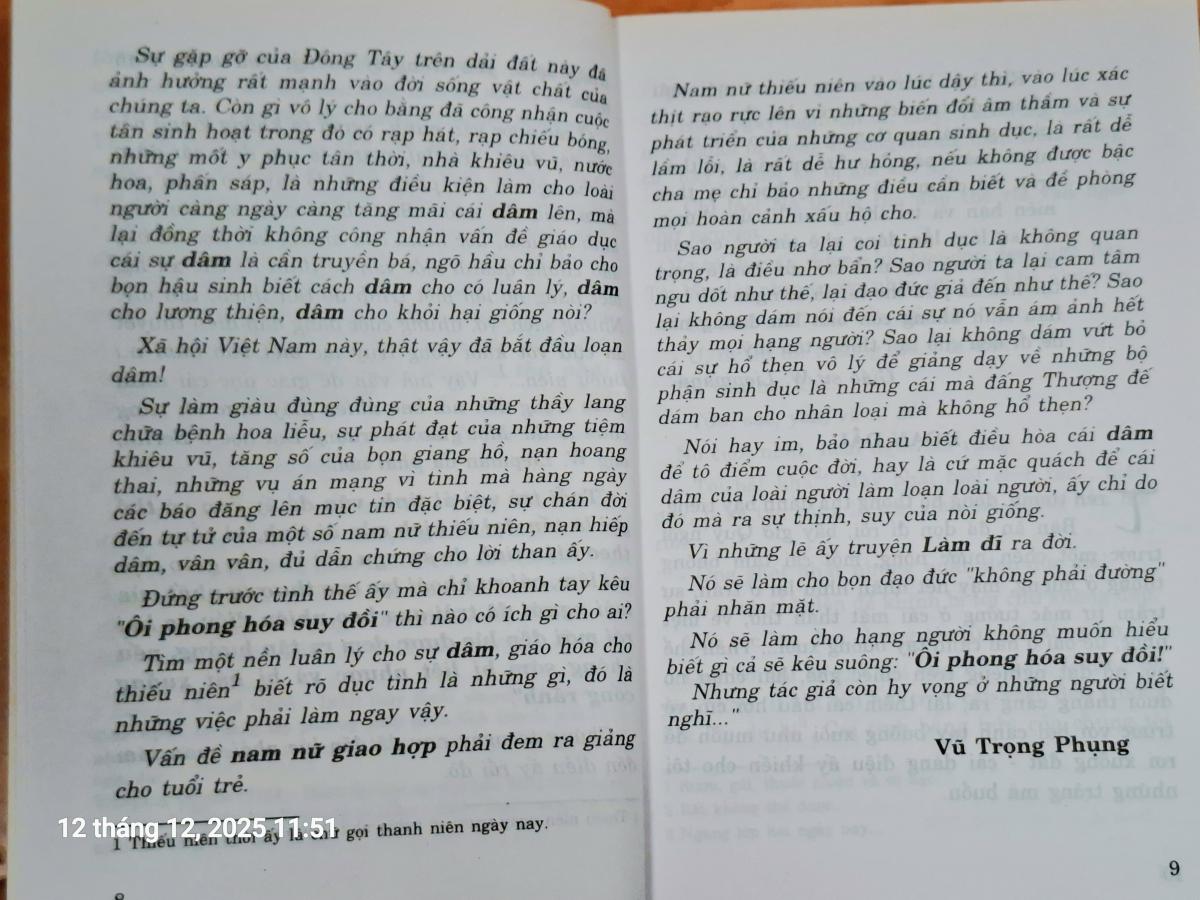 Sự gặp gỡ của Đông Tây trên dải đất này đã
ảnh hưởng rất mạnh vào đời sống vật chất của
chúng ta. Còn gì vô lý cho bằng đã công nhận cuộc
tân sinh hoạt trong đó có rạp hát, rạp chiếu bóng,
những mốt y phục tân thời, nhà khiêu vũ, nước
hoa, phấn sáp, là những điều kiện làm cho loài
người càng ngày càng tăng mãi cái dâm lên, mà
lại đồng thời không công nhận vấn đề giáo dục
cái sự dâm là cần truyền bá, ngõ hầu chỉ bảo cho
bọn hậu sinh biết cách dâm cho có luân lý, dâm
cho lương thiện, dâm cho khỏi hại giống nòi?
Xã hội Việt Nam này, thật vậy đã bắt đầu loạn
dâm!
Sự làm giàu đùng đùng của những thầy lang
chữa bệnh hoa liễu, sự phát đạt của những tiệm
khiêu vũ, tăng số của bọn giang hồ, nạn hoang
thai, những vụ án mạng vì tình mà hàng ngày
các báo đăng lên mục tin đặc biệt, sự chán đời
đến tự tử của một số nam nữ thiếu niên, nạn hiếp
dâm, vân vân, đủ dẫn chứng cho lời than ấy.
Đứng trước tình thế ấy mà chỉ khoanh tay kêu
"Ôi phong hóa suy đồi" thì nào có ích gì cho ai?
Tìm một nền luân lý cho sự dâm, giáo hóa cho
thiếu niên1 biết rõ dục tình là những gì, đó là
những việc phải làm ngay vậy.
Vấn đề nam nữ giao hợp phải đem ra giảng
cho tuổi trẻ.
1 Thiếu niên thời ấy là chữ gọi thanh niên ngày nay.
12 tháng 12, 2025 11:51
8
Nam nữ thiếu niên vào lúc dậy thì, vào lúc xác
thịt rạo rực lên vì những biến đổi âm thầm và sự
phát triển của những cơ quan sinh dục, là rất dễ
lầm lỗi, là rất dễ hư hỏng, nếu không được bậc
cha mẹ chỉ bảo những điều cần biết và đề phòng
mọi hoàn cảnh xấu hộ cho.
Sao người ta lại coi tình dục là không quan
trọng, là điều nhơ bẩn? Sao người ta lại cam tâm
ngu dốt như thế, lại đạo đức giả đến như thế? Sao
lại không dám nói đến cái sự nó vẫn ám ảnh hết
thảy mọi hạng người? Sao lại không dám vứt bỏ
cái sự hổ thẹn vô lý để giảng dạy về những bộ
phận sinh dục là những cái mà đấng Thượng đế
dám ban cho nhân loại mà không hổ thẹn?
Nói hay im, bảo nhau biết điều hòa cái dâm
để tô điểm cuộc đời, hay là cứ mặc quách để cái
dâm của loài người làm loạn loài người, ấy chỉ do
đó mà ra sự thịnh, suy của nòi giống.
Vì những lẽ ấy truyện Làm đĩ ra đời.
Nó sẽ làm cho bọn đạo đức "không phải đường"
phải nhăn mặt.
Nó sẽ làm cho hạng người không muốn hiểu
biết gì cả sẽ kêu suông: "Ôi phong hóa suy đồi!"
Nhưng tác giả còn hy vọng ở những người biết
nghĩ..."
Vũ Trọng Phụng
9